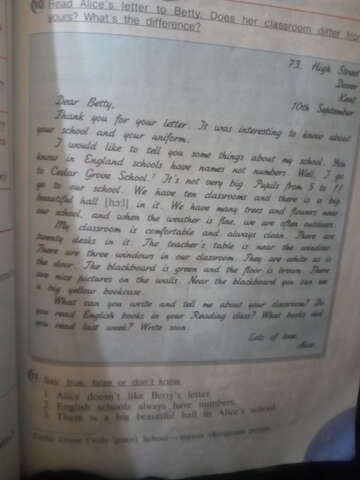 10 Read Alice's letter to Betty. Does her classroom differ from
yours? What's the difference?
73, High Street
Dover
Kent
10th September
Dear Betty,
Thank you for your letter. It was interesting to know about
your school and your uniform.
I would like to tell you some things about my school. You
know in England schools have names not numbers. Well, I go
to Cedar Grove School! It's not very big. Pupils from 5 to 11
go to our school. We have ten classrooms and there is a big
beautiful hall [hɔ:l] in it. We have many trees and flowers near
our school, and when the weather is fine, we are often outdoors.
My classroom is comfortable and always clean. There are
twenty desks in it. The teacher's table is near the window.
There are three windows in our classroom. They are white as is
the door. The blackboard is green and the floor is brown. There
are nice pictures on the walls. Near the blackboard you can see
a big yellow bookcase.
What can you write and tell me about your classroom? Do
you read English books in your Reading class? What books did
you read last week? Write soon.
Lots of love,
Alice.
Say: true, false or don't know.
1. Alice doesn't like Betty's letter.
2. English schools always have numbers.
3. There is a big beautiful hall in Alice's school.
School —